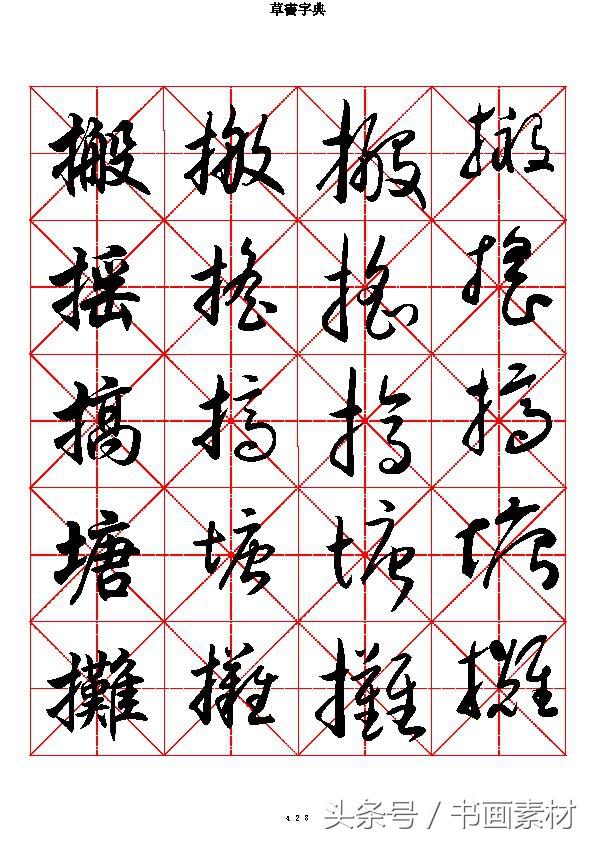 草書字典
搬搬搬搬
摇摇摇摇
搞搞搞搞
塘塘塘塘
攤攤攤攤
428
头条号 / 书画素材